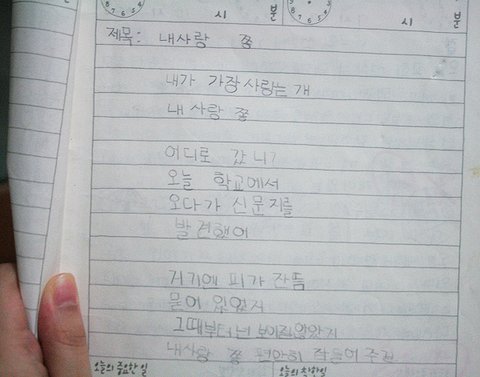 시 분 시 분
제목: 내사랑 쫑
내가 가장 사랑는 개
내 사랑 쫑
어디로 갔니?
오늘 학교에서
오다가 신문지를
발견했어
거기엔 피가 잔뜩
묻어 있었지
그때부터 넌 보이질 않았지
내사랑 쫑 편안히 잠들어
오늘의 중요한 일 오늘의 착한 일